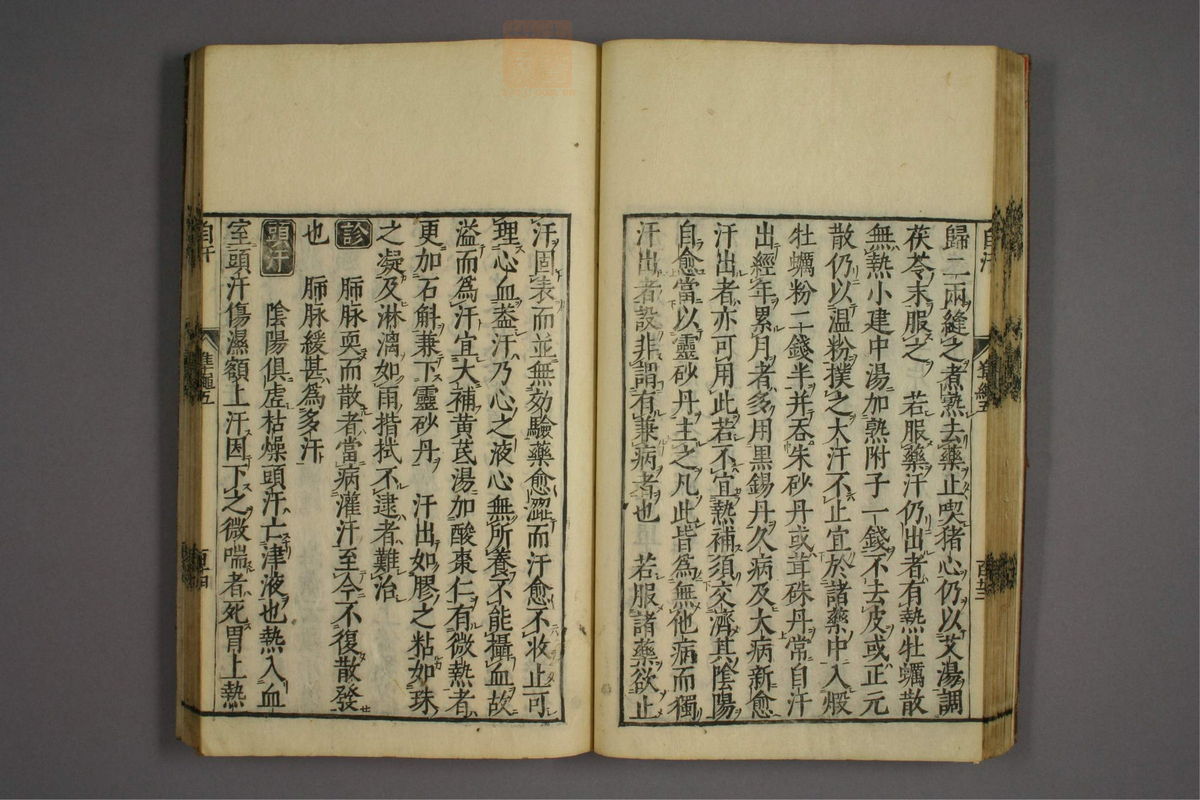 歸二兩縫之煮熟去藥止喫猪心仍以艾湯調
茯苓末服之　若服藥汗仍出者有熱牡蠣散
無熱小建中湯加熟附子一錢不去皮或正元
散仍以温粉撲之大汗不止宜於諸藥中入煅
牡蠣粉二錢半并吞朱砂丹或茸硃丹常自汗
出經年累月者多用黒錫丹久病及大病新愈
汗出者亦可用此若不宜熱補須交濟其陰陽
自愈當以靈砂丹主之凡此皆爲無他病而獨
汗出者設非謂有兼病者也　若服諸藥欲止
汗固表而並無効驗藥愈澀而汗愈不收止可
理心血盖汗乃心之液心無所養不能攝血故
溢而爲汗宜大補黄芪湯加酸棗仁有微熱者
更加石斛兼下靈砂丹　汗出如膠之粘如珠
之凝及淋漓如雨揩拭不逮者難治
診　肺脉耎而散者當病灌汗至今不復散發
也　肺脉緩甚爲多汗
頭汗　陰陽俱虚枯燥頭汗亡津液也熱入血
室頭汗傷濕額上汗因下之微喘者死胃上熱
自汗